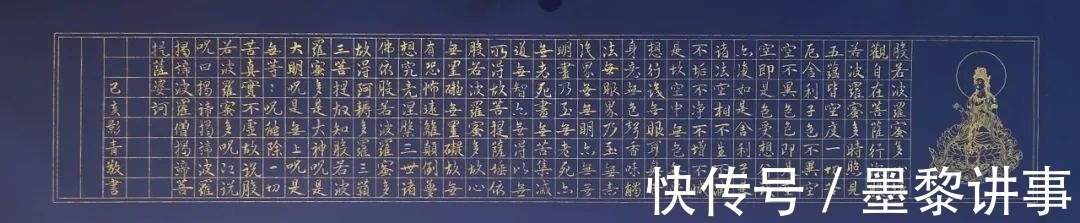 般若波羅蜜多心經
觀自在菩薩行深般
若波羅蜜多時照見
五蘊皆空度一切苦
厄舍利子色不異空
空不異色色即是空
空即是色受想行識
亦復如是舍利子是
諸法空相不生不滅
不垢不淨不增不減
是故空中無色無受
想行識無眼耳鼻舌
身意無色聲香味觸
法無眼界乃至無意
識界無無明亦無無
明盡乃至無老死亦
無老死盡無苦集滅
道無智亦無得以無
所得故菩提薩埵依
般若波羅蜜多故心
無罣礙無罣礙故無
有恐怖遠離顛倒夢
想究竟涅槃三世諸
佛依般若波羅蜜多
故得阿耨多羅三藐
三菩提故知般若波
羅蜜多是大神咒是
大明咒是無上咒是
無等等咒能除一切
苦真實不虛故說般
若波羅蜜多咒即說
咒曰揭諦揭諦波羅
揭諦波羅僧揭諦菩
提薩婆訶
己亥影青敬書
快传号 / 墨黎讲事